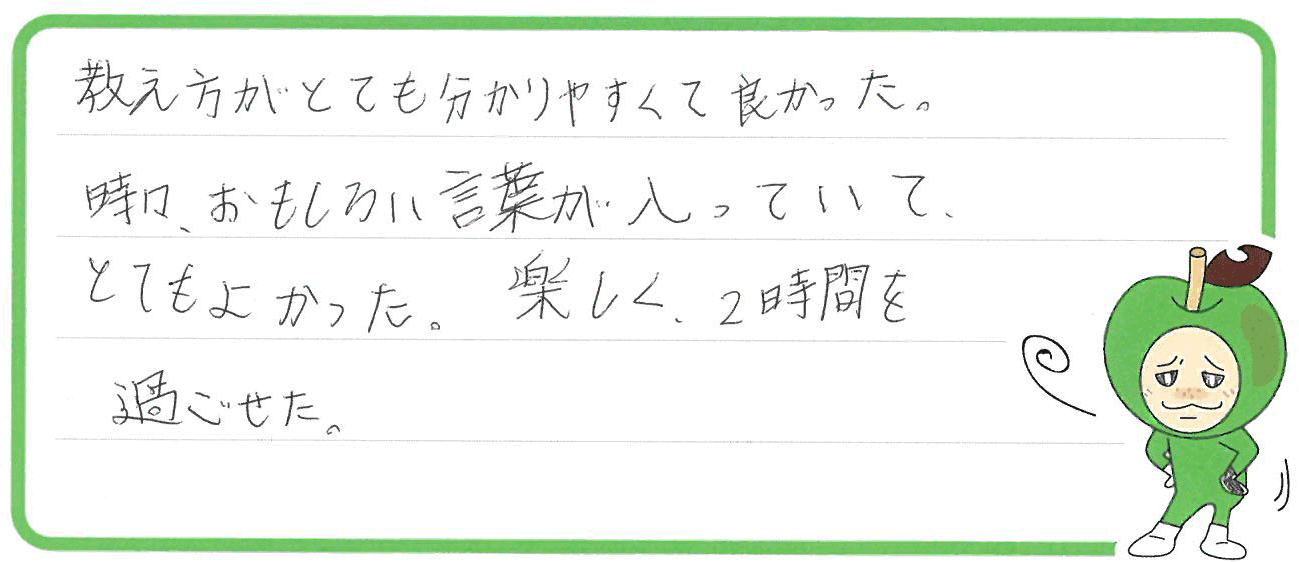 教え方がとても分かりやすくて良かった。
時々、おもしろい言葉が入っていて、
とてもよかった。楽しく、2時間を
過ごせた。